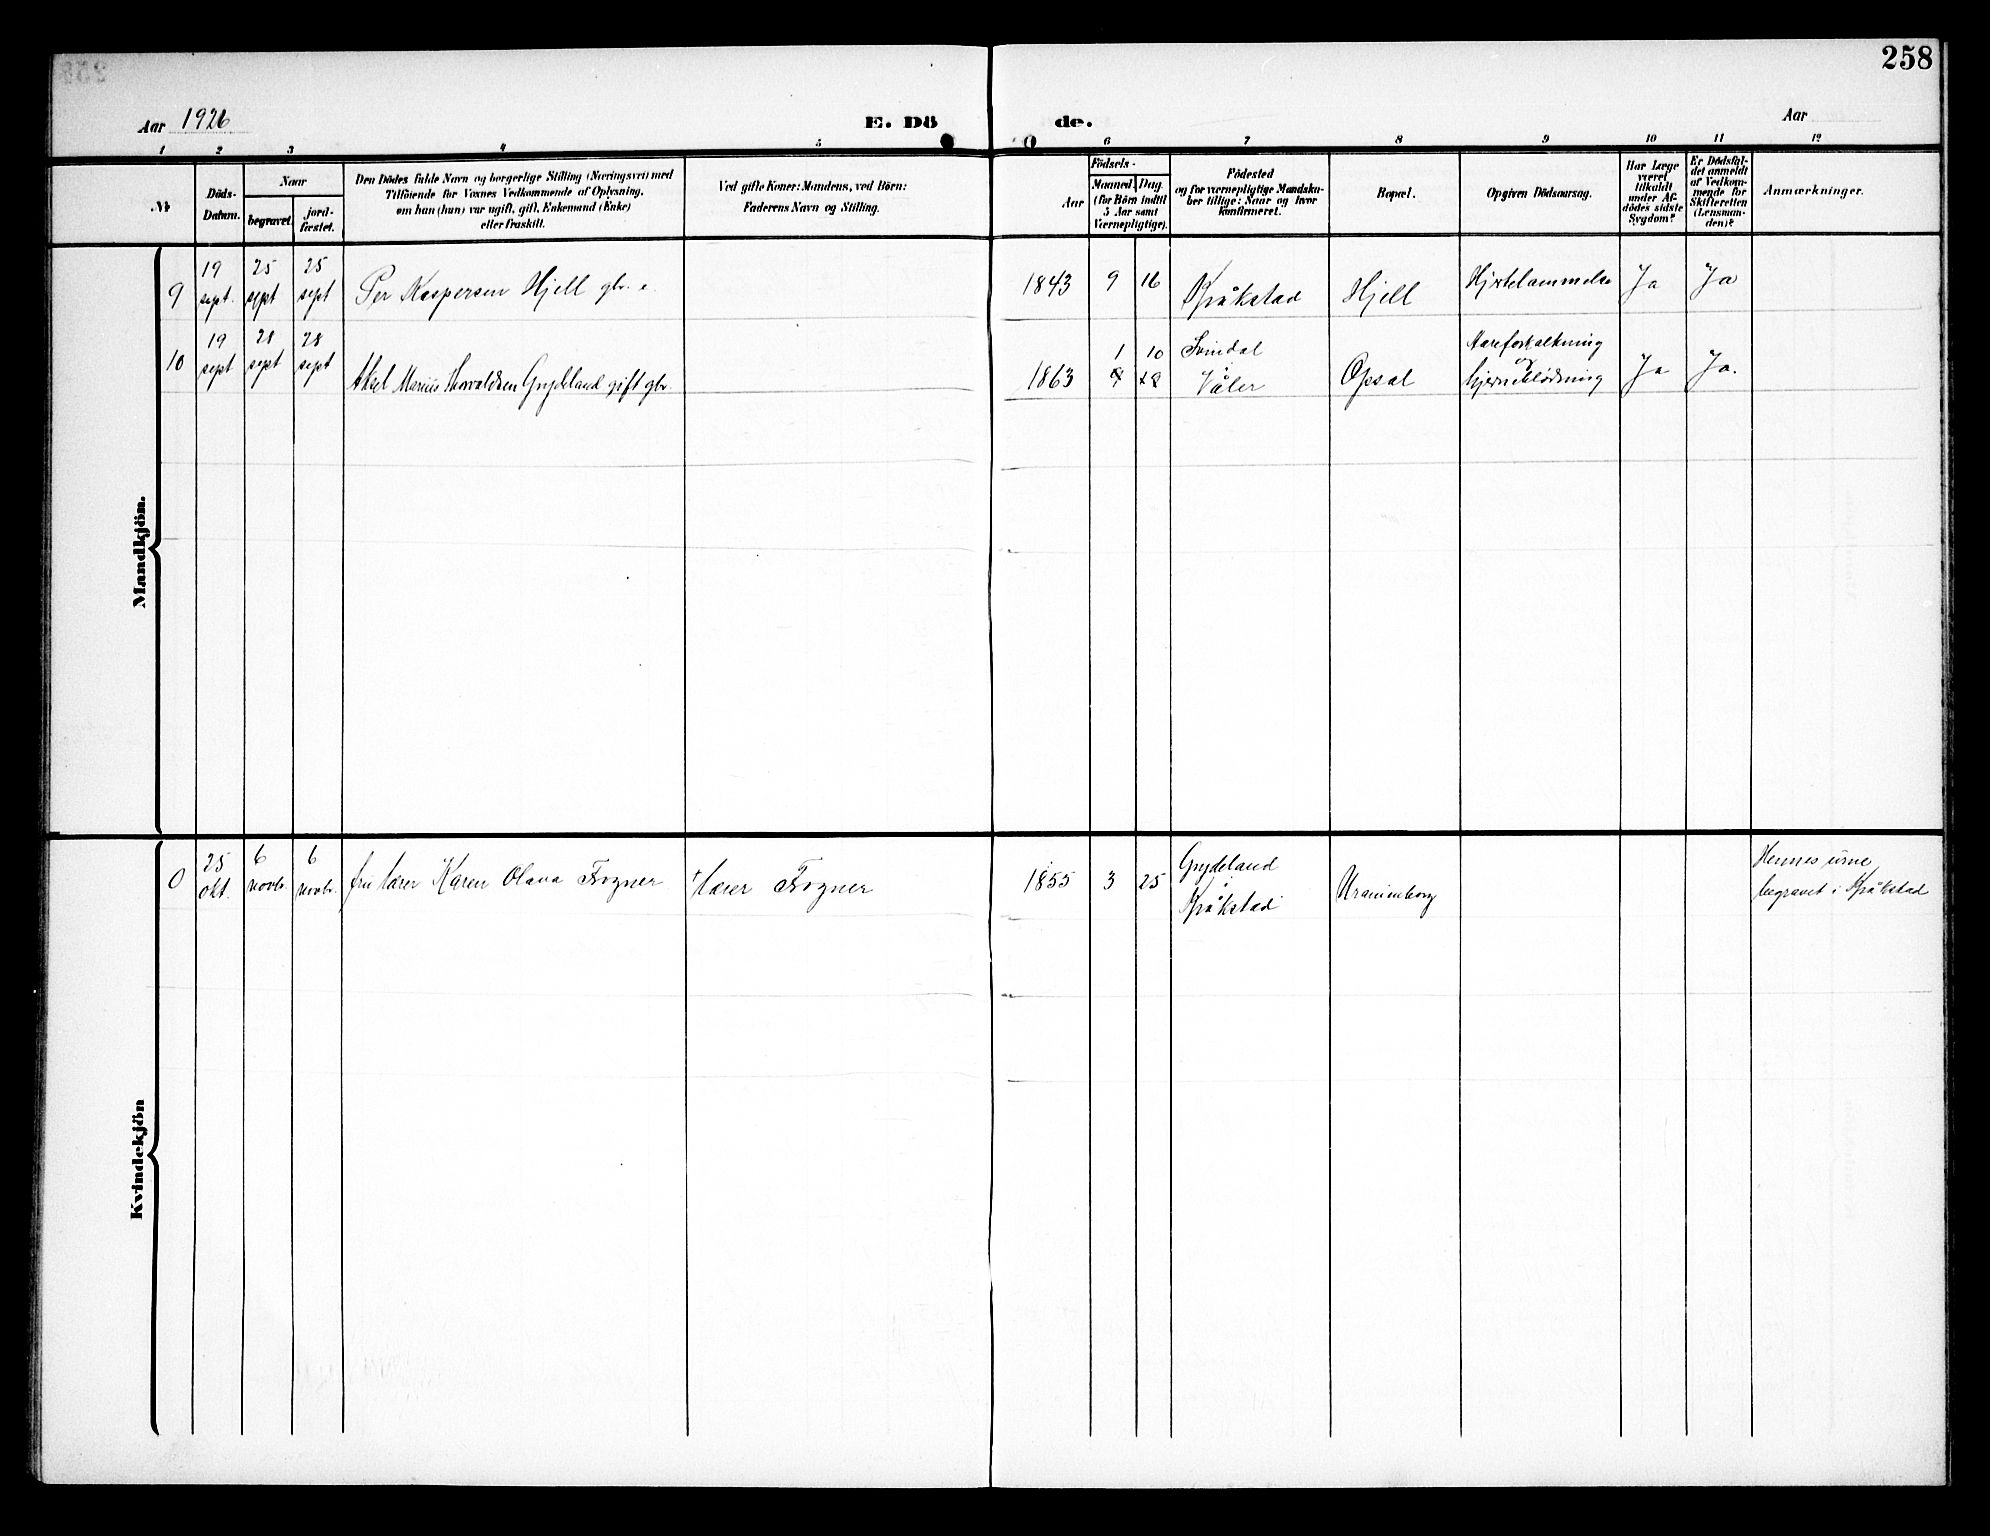 258
Aar 1926
E. Dö
de.
Aar
1 2 3 4 5 6 7 8 9 10 11 12
№
Döds-
Datum.
Naar
begravet.
jord-
fæstet.
Den Dödes fulde Navn og borgerlige Stilling (Næringsvei) med
Tilföiende for Voxnes Vedkommende af Oplysning,
om han (hun) var ugift, gift, Enkemand (Enke)
eller fraskilt.
Ved gifte Koner: Mandens, ved Börn:
Faderens Navn og Stilling.
Födsels-
Aar
Maaned. Dag.
(for Börn indtil
5 Aar samt
Værnepligtige).
Födested
og for værnepligtige Mandska-
ber tillige: Naar og hvor
konfirmeret.
Bopæl.
Opgiven Dödsaarsag.
Har Læge
været
tilkaldt
under Af-
dödes sidste
Sygdom?
Er Dødsfal-
det anmeldt
af Vedkom-
mende for
Skifteretten
(Lensman-
den)?
Anmærkninger.
Mandkjön.
9 19 sept. 25 sept 25 sept Per Kaspersen Hjell gbr. e. 1843 9 16 Kråkstad Hjell Hjertelammelse Ja Ja
10 19 sept 28 sept 28 sept Aksel Marius Thorvaldsen Grydeland gift gbr. 1863 1 10 Svindal
Våler Opsal Aareforkalkning
og
hjerneblödning Ja Ja.
Kvindekjön
0 25 okt. 6 novbr. 6 novbr. fru lærer Karen Olava Fogner + lærer Fogner 1855 3 25 Grydeland
Kråkstad Uranienborg Hennes urne
begravet i Kråkstad